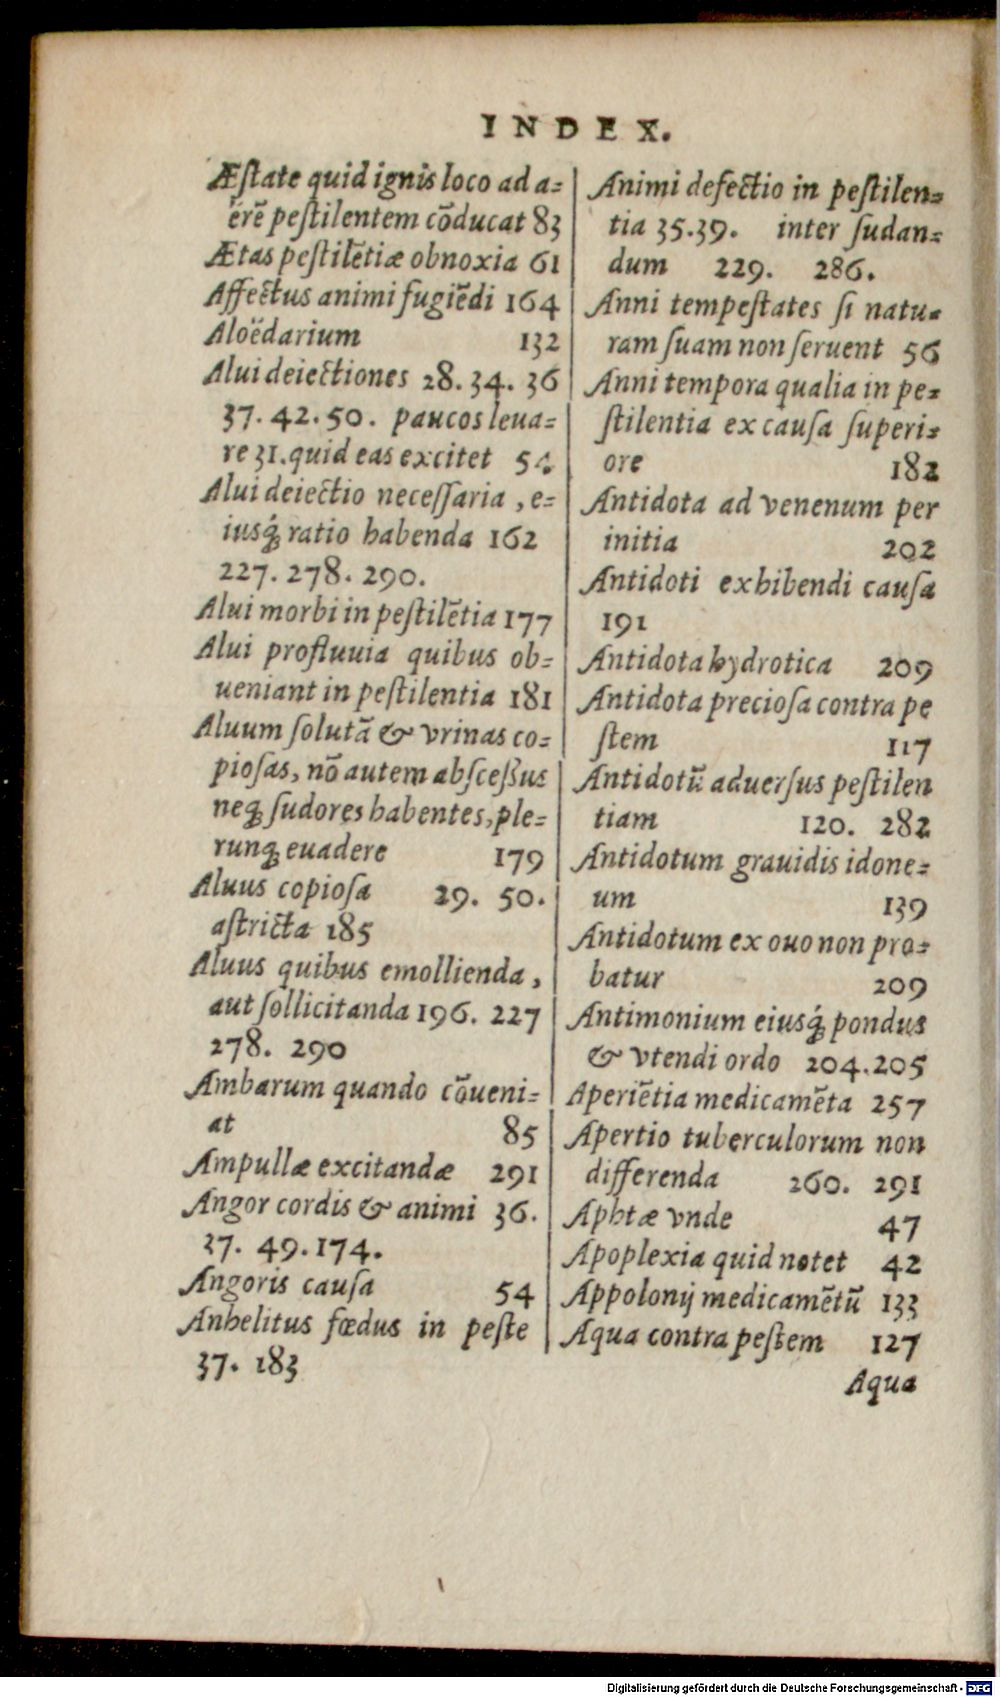 INDEX.
Æſtate quid ignis loco ad a=
ërē peſtilentem cōducat 83
Ætas peſtilētiæ obnoxia 61
Affectus animi fugiēdi 164
Aloëdarium 132
Alui deiectiones 28. 34. 36
37. 42. 50. paucos leua=
re 31. quid eas excitet 54
Alui deiectio neceſſaria, e=
iusq́; ratio habenda 162
227. 278. 290.
Alui morbi in peſtilētia 177
Alui profluuia quibus ob=
ueniant in peſtilentia 181
Aluum ſolutā & vrinas co=
pioſas, nō autem abſceßus
neq; ſudores habentes, ple=
runq; euadere 179
Aluus copioſa 29. 50.
aſtricta 185
Aluus quibus emollienda,
aut ſollicitanda 196. 227
278. 290
Ambarum quando cōueni=
at 85
Ampullæ excitandæ 291
Angor cordis & animi 36.
37. 49. 174.
Angoris cauſa 54
Anhelitus fœdus in peſte
37. 183
Animi defectio in peſtilen=
tia 35. 39. inter ſudan=
dum 229. 286.
Anni tempeſtates ſi natu=
ram ſuam non ſeruent 56
Anni tempora qualia in pe=
ſtilentia ex cauſa ſuperi=
ore 182
Antidota ad venenum per
initia 202
Antidoti exhibendi cauſa
191
Antidota hydrotica 209
Antidota precioſa contra pe
ſtem 117
Antidotū aduerſus peſtilen
tiam 120. 282
Antidotum grauidis idone=
um 139
Antidotum ex ouo non pro=
batur 209
Antimonium eiusq́; pondus
& vtendi ordo 204. 205
Aperiētia medicamēta 257
Apertio tuberculorum non
differenda 260. 291
Aphtæ vnde 47
Apoplexia quid notet 42
Appolonij medicamētū 133
Aqua contra peſtem 127
Aqua
Digitalisierung gefördert durch die Deutsche Forschungsgemeinschaft - DFG